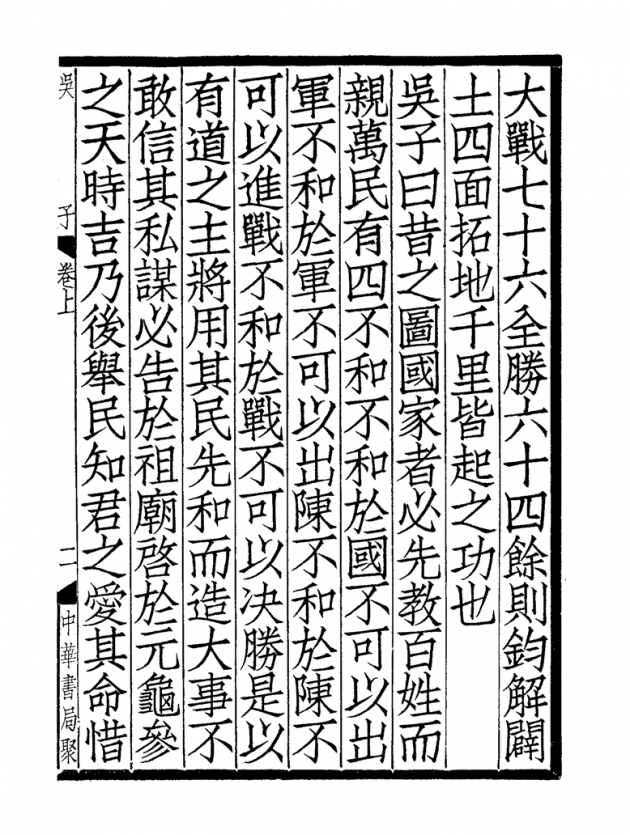 大戰七十六全勝六十四餘則鈞解闢
土四面拓地千里皆起之功也
吳子曰昔之圖國家者必先教百姓而
親萬民有四不和不和於國不可以出
軍不和於軍不可以出陳不和於陳不
可以進戰不和於戰不可以决勝是以
有道之主將用其民先和而造大事不
敢信其私謀必告於祖廟啓於元龜參
之天時吉乃後舉民知君之愛其命惜
吳 子 卷上 二 中華書局聚